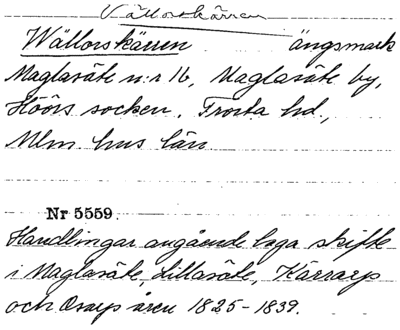 Vällorskärren
Wällorskärren ängsmark
Maglasäte n:r 16, Maglasäte by,
Höörs socken. Frosta hd.,
Mlm. hus län.
Nr 5559.
Handlingar angående laga skifte
i Maglasäte, Lillasäte, Kärrarp
och Orarp åren 1825-1839.